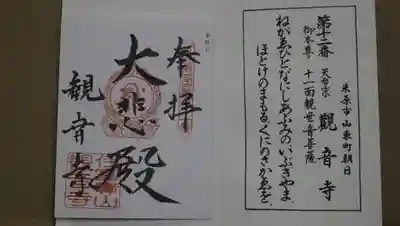 米原市山東町朝日
第十二番 天台宗 觀音寺
御本尊 十一面観世音菩薩
ねがゑひとなにしあふみのいぶきやま、
ほとけのまもる、くにのさかゑを、
奉拝
大悲殿
観音寺